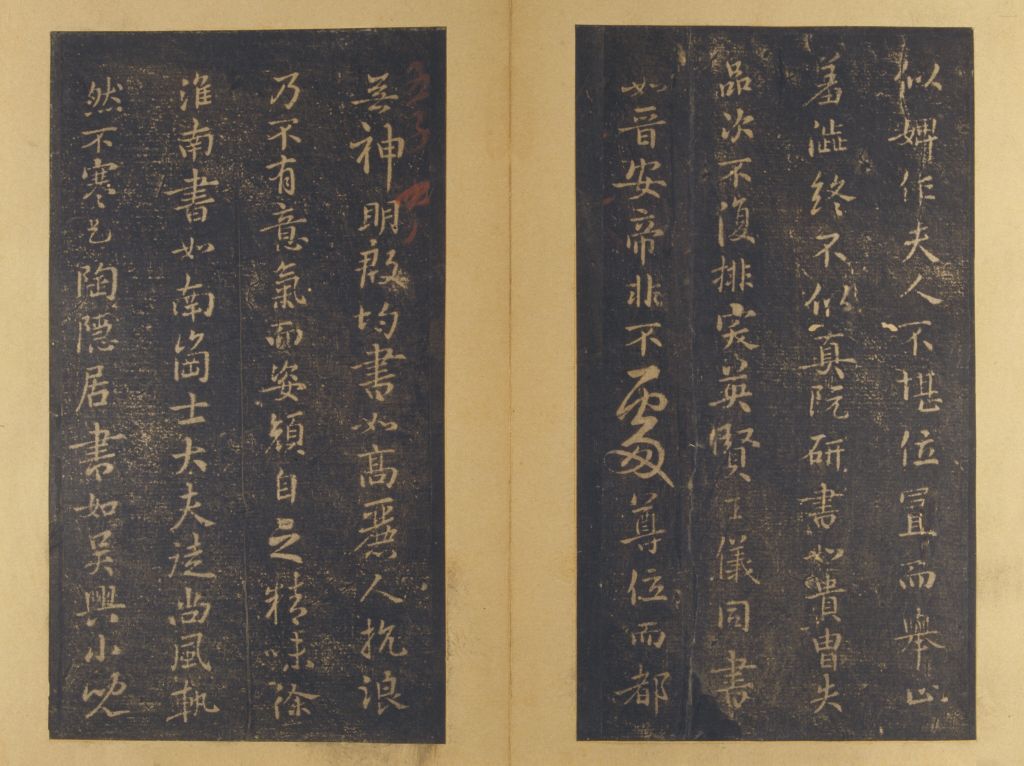 似婢作夫人不堪位置而舉止
羞澁終不似真阮研書如貴冑失
品次不復排突英賢王儀同書
如晉安帝非不處尊位而都
無神明殷均書如高麗人抗浪
乃不有意氣而姿顏自乏精味徐
淮南書如南岡士大夫徒尚風軌
然不寒乞陶隱居書如吳興小兒